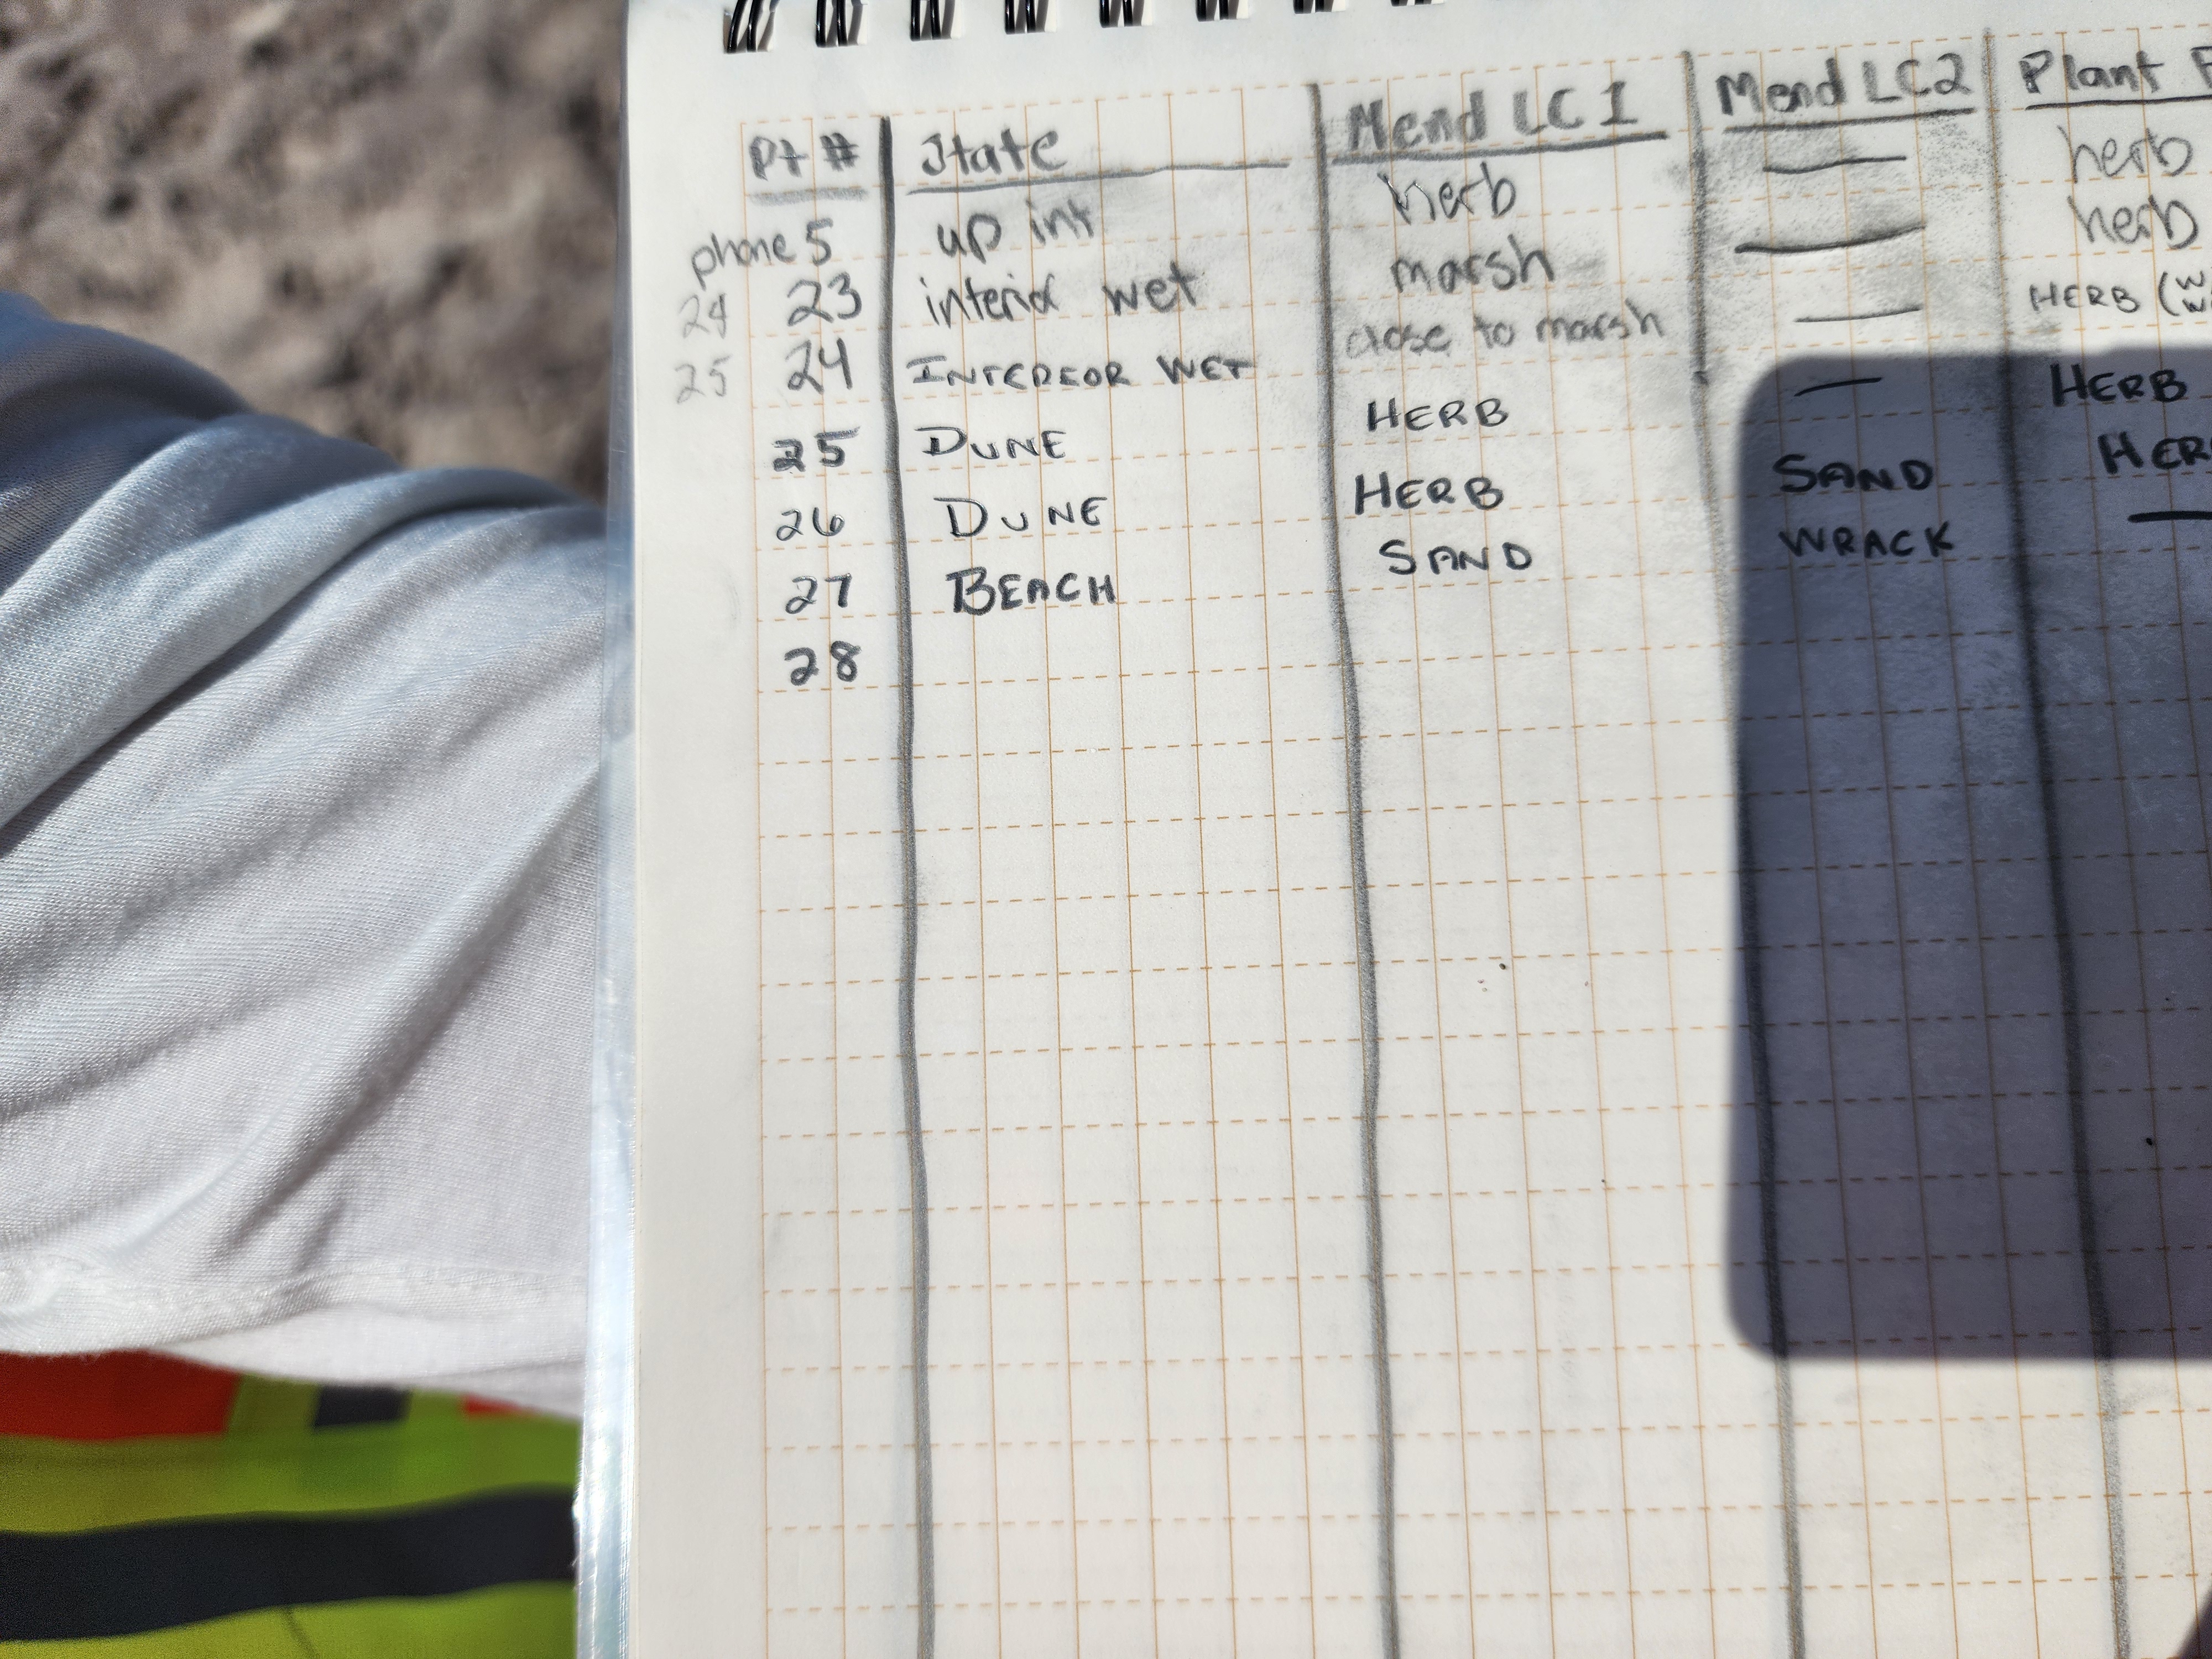 Pt # State Mend LC 1 Mend LC2 Plant
phone 5 up int herb — herb
24 23 interior wet marsh — herb
25 24 INTEREOR WET close to marsh — HERB (
25 DUNE HERB — HERB
26 DUNE HERB SAND HER
27 BEACH SAND WRACK —
28